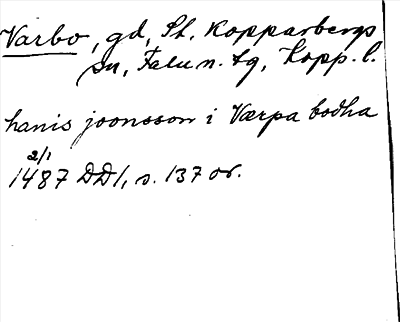 Varbo, gd, St. Kopparbergs
sn, Falu n. tg, Kopp. l.
hanis joonsson i Værpa bodha
2/1
1487 DD1, s. 137 or.